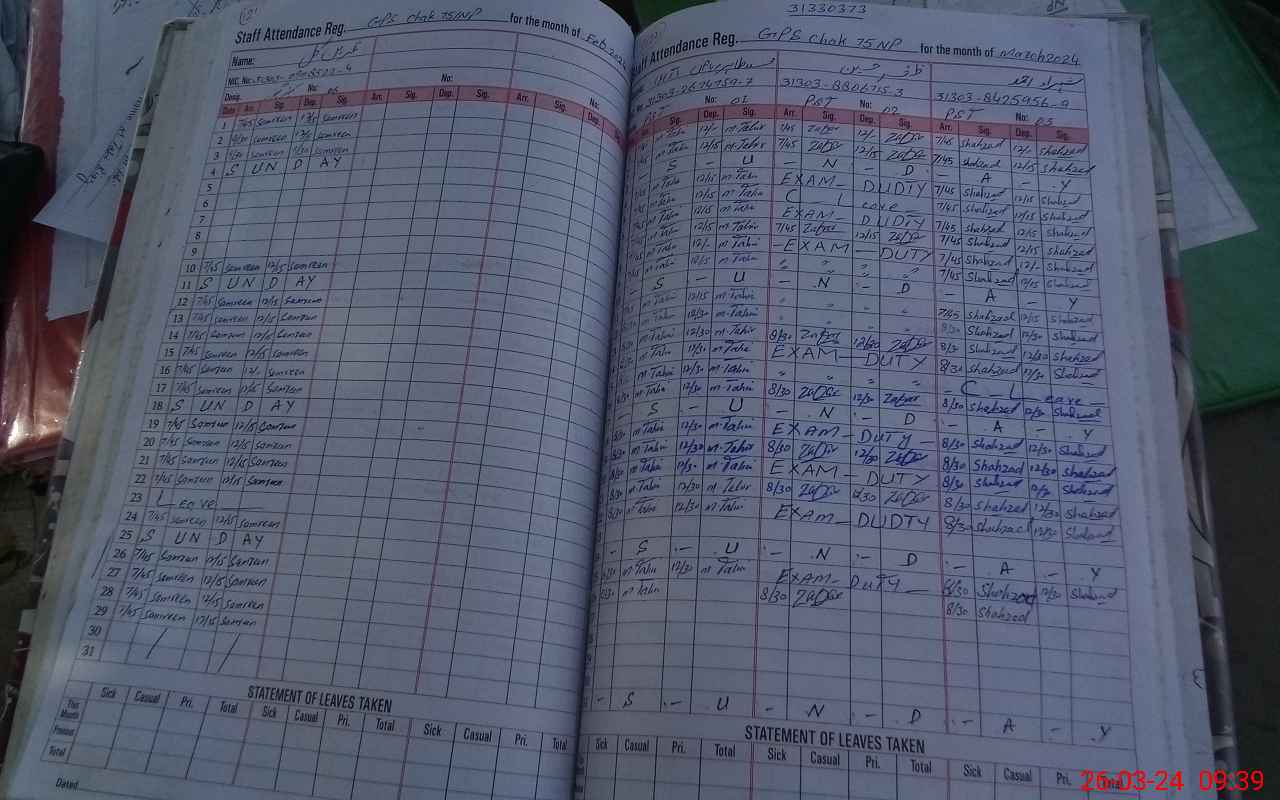 Staff Attendance Reg. GPS Chak 75/NP for the month of Feb 2024
Name:
NIC. No:
Desig. No: No: No:
Date Arr. Sig. Dep. Sig. Arr. Sig. Dep. Sig. Arr. Sig. Dep. Sig.
1 7/45 Samreen Samreen
2 Samreen Samreen
3 Samreen Samreen
4 S UN D AY
5
6
7
8
9
10 7/45 Samreen 12/15 Samreen
11 S UN D AY
12 7/45 Samreen 12/15 Samreen
13 7/45 Samreen 12/15 Samreen
14 7/45 Samreen 12/15 Samreen
15 7/45 Samreen 12/15 Samreen
16 7/45 Samreen 12/- Samreen
17 7/45 Samreen 12/15 Samreen
18 S UN D AY
19 7/45 Samreen 12/15 Samreen
20 7/45 Samreen 12/15 Samreen
21 7/45 Samreen 12/15 Samreen
22 7/45 Samreen 12/15 Samreen
23 L eave
24 7/45 Samreen 12/15 Samreen
25 S UN D AY
26 7/45 Samreen 12/15 Samreen
27 7/45 Samreen 12/15 Samreen
28 7/45 Samreen 12/15 Samreen
29 7/45 Samreen 12/15 Samreen
30
31
STATEMENT OF LEAVES TAKEN
Sick Casual Pri. Total Sick Casual Pri. Total Sick Casual Pri. Total
This Month
Previous
Total
Dated
31330373
Staff Attendance Reg. GPS Chak 75 NP for the month of March 2024
ظفر حسین شہزاد احمد
31303-2674759-7 31303-8806715-3 31303-8425956-9
No: 01 PST No: 02 PST No: 03
Sig. Dep. Sig. Arr. Sig. Dep. Sig. Arr. Sig. Dep. Sig.
m Tahir 12/- m Tahir 7/45 Zafar 12/- Zafar 7/45 Shahzad 12/- Shahzad
m Tahir 12/15 m Tahir 7/45 Zafar 12/15 Zafar 7/45 Shahzad 12/15 Shahzad
- S - U - N - D - A - Y
m Tahir 12/15 m Tahir EXAM - DUDTY 7/45 Shahzad 12/15 Shahzad
m Tahir 12/15 m Tahir C L eave 7/45 Shahzad 12/15 Shahzad
m Tahir 12/15 m Tahir EXAM - DUDTY 7/45 Shahzad 12/15 Shahzad
m Tahir 12/15 m Tahir 7/45 Zafar 12/15 Zafar 7/45 Shahzad 12/15 Shahzad
m Tahir 12/- m Tahir - EXAM - DUTY 7/45 Shahzad 12/- Shahzad
m Tahir 12/15 m Tahir " " " " 7/45 Shahzad 12/15 Shahzad
- S - U - N - D - A - Y
m Tahir 12/15 m Tahir " " " " 7/45 Shahzad 12/15 Shahzad
m Tahir 12/30 m Tahir " " " " 8/30 Shahzad 12/30 Shahzad
m Tahir 12/30 m Tahir 8/30 Zafar 12/30 Zafar 8/30 Shahzad 12/30 Shahzad
m Tahir 12/30 m Tahir EXAM - DUTY 8/30 Shahzad 12/30 Shahzad
m Tahir 12/30 m Tahir " " " " - C L eave -
m Tahir 12/30 m Tahir 8/30 Zafar 12/30 Zafar 8/30 Shahzad 12/30 Shahzad
- S - U - N - D - A - Y
m Tahir 12/30 m Tahir EXAM - DUTY - 8/30 Shahzad 12/30 Shahzad
8/30 m Tahir 12/30 m Tahir 8/30 Zafar 12/30 Zafar 8/30 Shahzad 12/30 Shahzad
8/30 m Tahir 12/30 m Tahir EXAM - DUTY 8/30 Shahzad Shahzad
8/30 m Tahir 12/30 m Tahir 8/30 Zafar 12/30 Zafar 8/30 Shahzad 12/30 Shahzad
m Tahir 12/30 m Tahir EXAM - DUDTY 8/30 Shahzad 12/30 Shahzad
- S - U - N - D - A - Y
m Tahir 12/30 m Tahir EXAM - DUTY - 8/30 Shahzad 12/30 Shahzad
m Tahir 8/30 Zafar 8/30 Shahzad
- S - U - N - D - A - Y
STATEMENT OF LEAVES TAKEN
Sick Casual Pri. Total Sick Casual Pri. Total Sick Casual Pri. Total
26-03-24 09:39